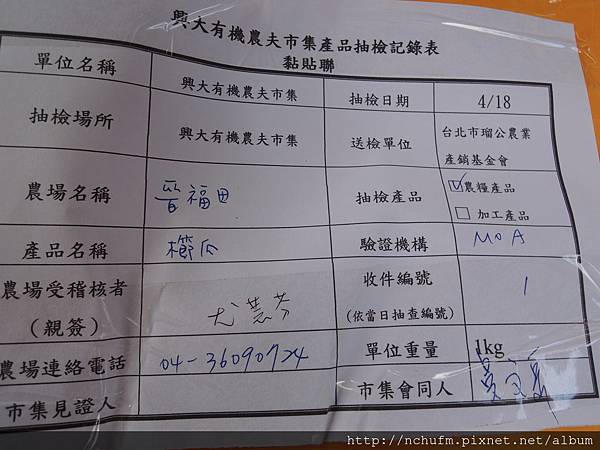 興大有機農夫市集產品抽檢記錄表
黏貼聯
單位名稱 興大有機農夫市集 抽檢日期 4/18
抽檢場所 興大有機農夫市集 送檢單位 台北市瑠公農業
產銷基金會
農場名稱 晉福田 抽檢產品 ☑農糧產品
☐ 加工產品
產品名稱 櫛瓜 驗證機構 MOA
農場受稽核者 收件編號 1
(親簽) 尤慧芳 (依當日抽查編號)
農場連絡電話 04-36090724 單位重量 1kg
市集見證人 市集會同人
http://nchufm.pixnet.net/album